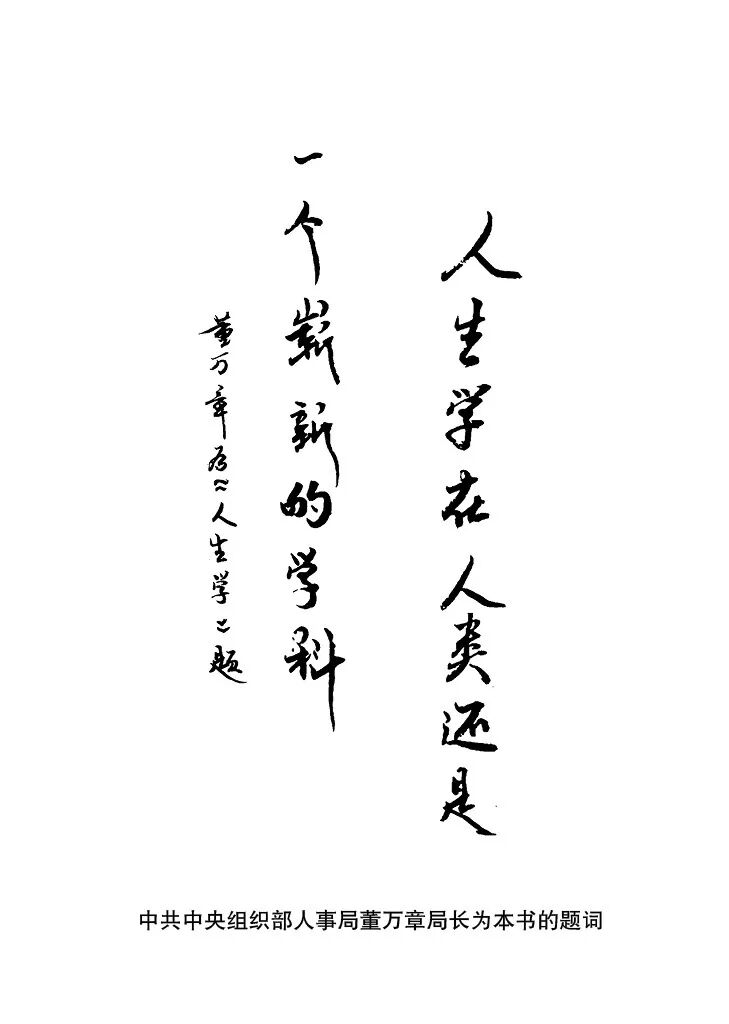 人生学在人类还是
一个崭新的学科
董万章为《人生学》题
中共中央组织部人事局董万章局长为本书的题词